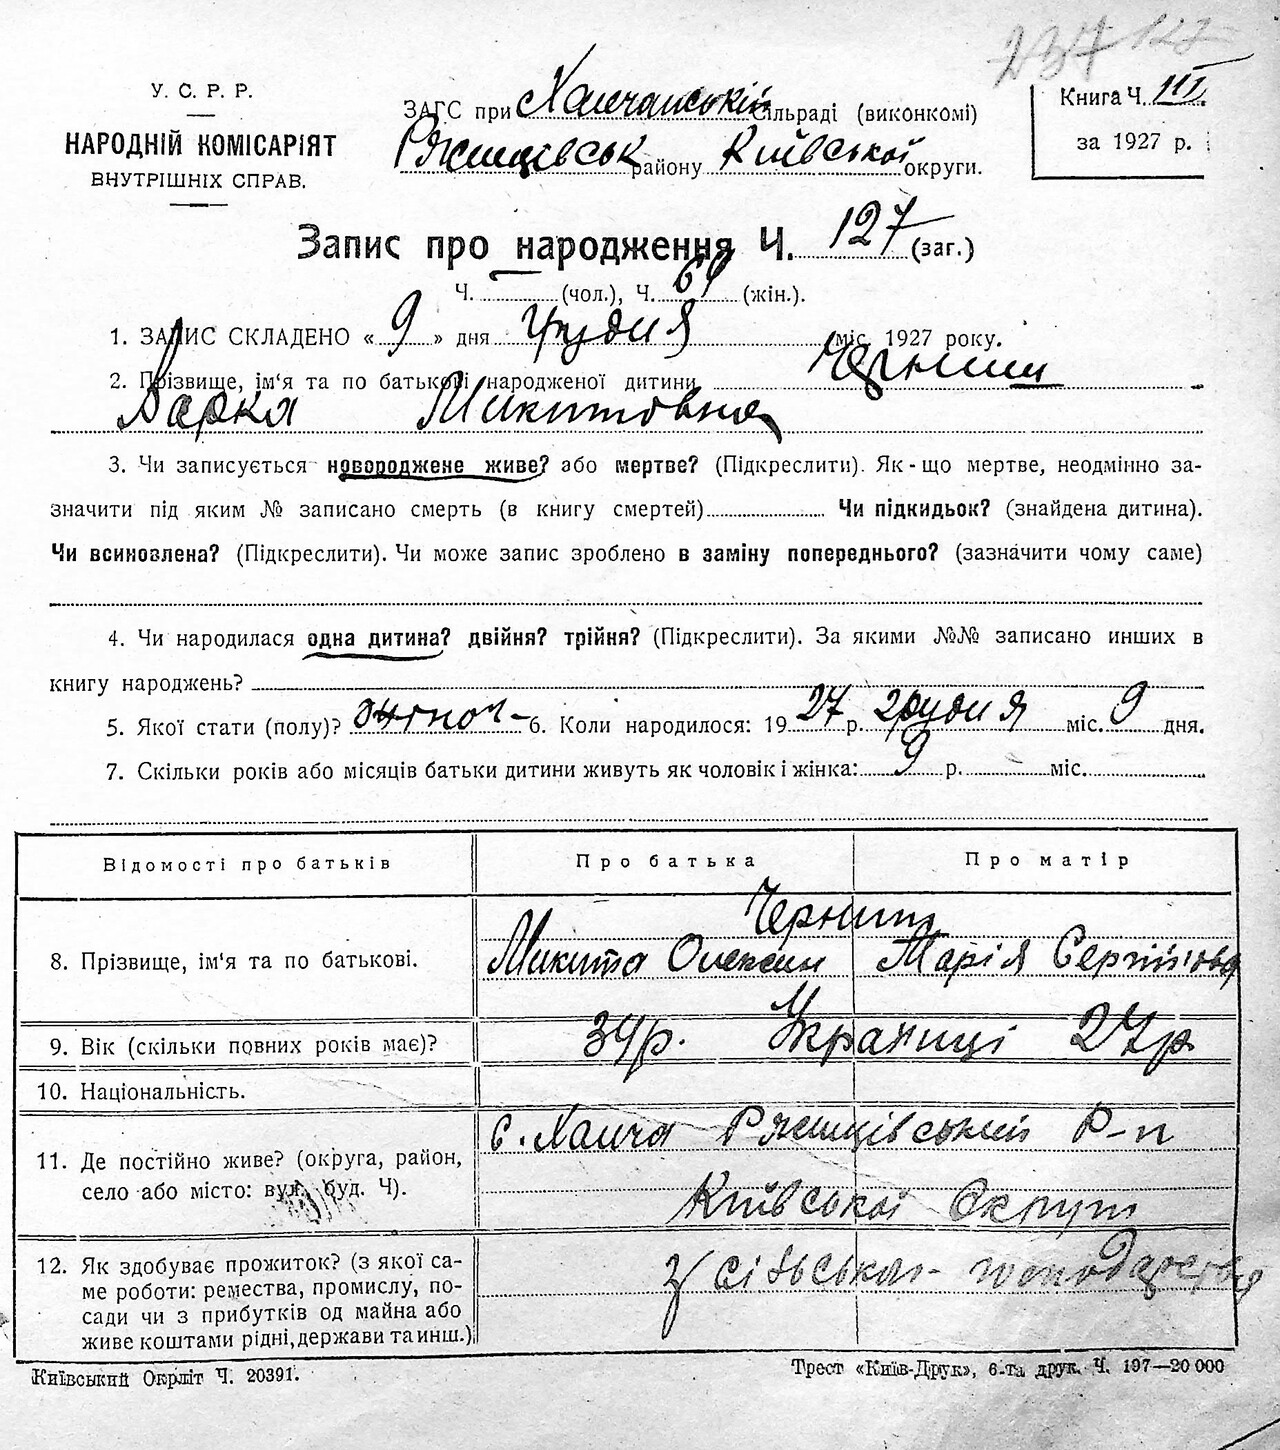 237 127
У. С. Р. Р.
НАРОДНІЙ КОМІСАРІЯТ
ВНУТРІШНІХ СПРАВ.
ЗАГС при Халчанській сільраді (виконкомі)
Ржищівськ району Київської округи.
Книга Ч. III.
за 1927 р.
Запис про народження Ч. 127 (заг.)
Ч. (чол.), Ч. 61 (жін.).
1. ЗАПИС СКЛАДЕНО « 9 » дня грудня міс. 1927 року.
2. Прізвище, ім'я та по батькові народженої дитини Черниш
Варка Микитовна
3. Чи записується новороджене живе? або мертве? (Підкреслити). Як-що мертве, неодмінно за-
значити під яким № записано смерть (в книгу смертей) Чи підкидьок? (знайдена дитина).
Чи всиновлена? (Підкреслити). Чи може запис зроблено в заміну попереднього? (зазначити чому саме)
4. Чи народилася одна дитина? двійня? трійня? (Підкреслити). За якими №№ записано инших в
книгу народжень?
5. Якої стати (полу)? жіноч- 6. Коли народилося: 1927 р. грудня міс. 9 дня.
7. Скільки років або місяців батьки дитини живуть як чоловік і жінка: 9 р. міс.
Відомості про батьків Про батька Про матір
Черниш
8. Прізвище, ім'я та по батькові. Микита Олексин Марія Сергійовна
9. Вік (скільки повних років має)? 34р. Українці 27р
10. Національність.
с. Халча Ржищівський Р-н
11. Де постійно живе? (округа, район,
село або місто: вул. буд. Ч).
Київської Округи
12. Як здобуває прожиток? (з якої са-
ме роботи: ремества, промислу, по-
сади чи з прибутків од майна або
живе коштами рідні, держави та инш.)
З сільського господарства
Київський Окрліт Ч. 20391.
Трест «Київ-Друк», 6-та друк. Ч. 197—20 000